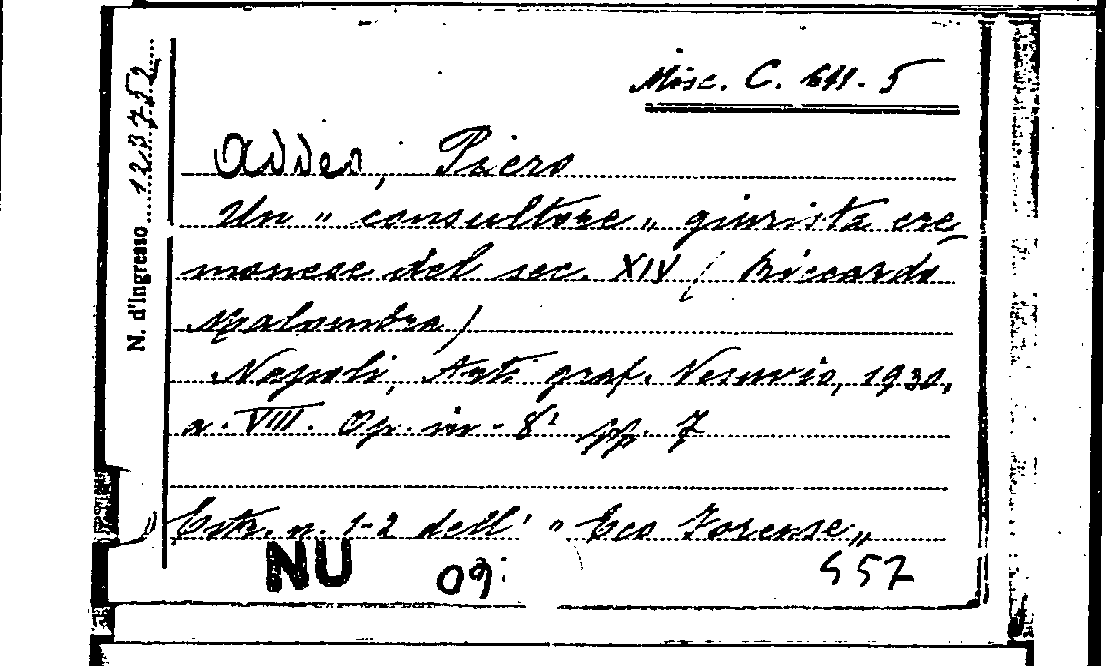 Misc. C. 611. 5
N. d'Ingresso 123752
Addeo, Piero
Un "consultore" giurista cre
monese del sec. XIV (Riccardo
Malombra)
Napoli, Arti graf. Vesuvio, 1930,
a. VIII. Op. in-8° pp. 7
Estr. n. 1-2 dell' "Eco Forense"
NU 09 557